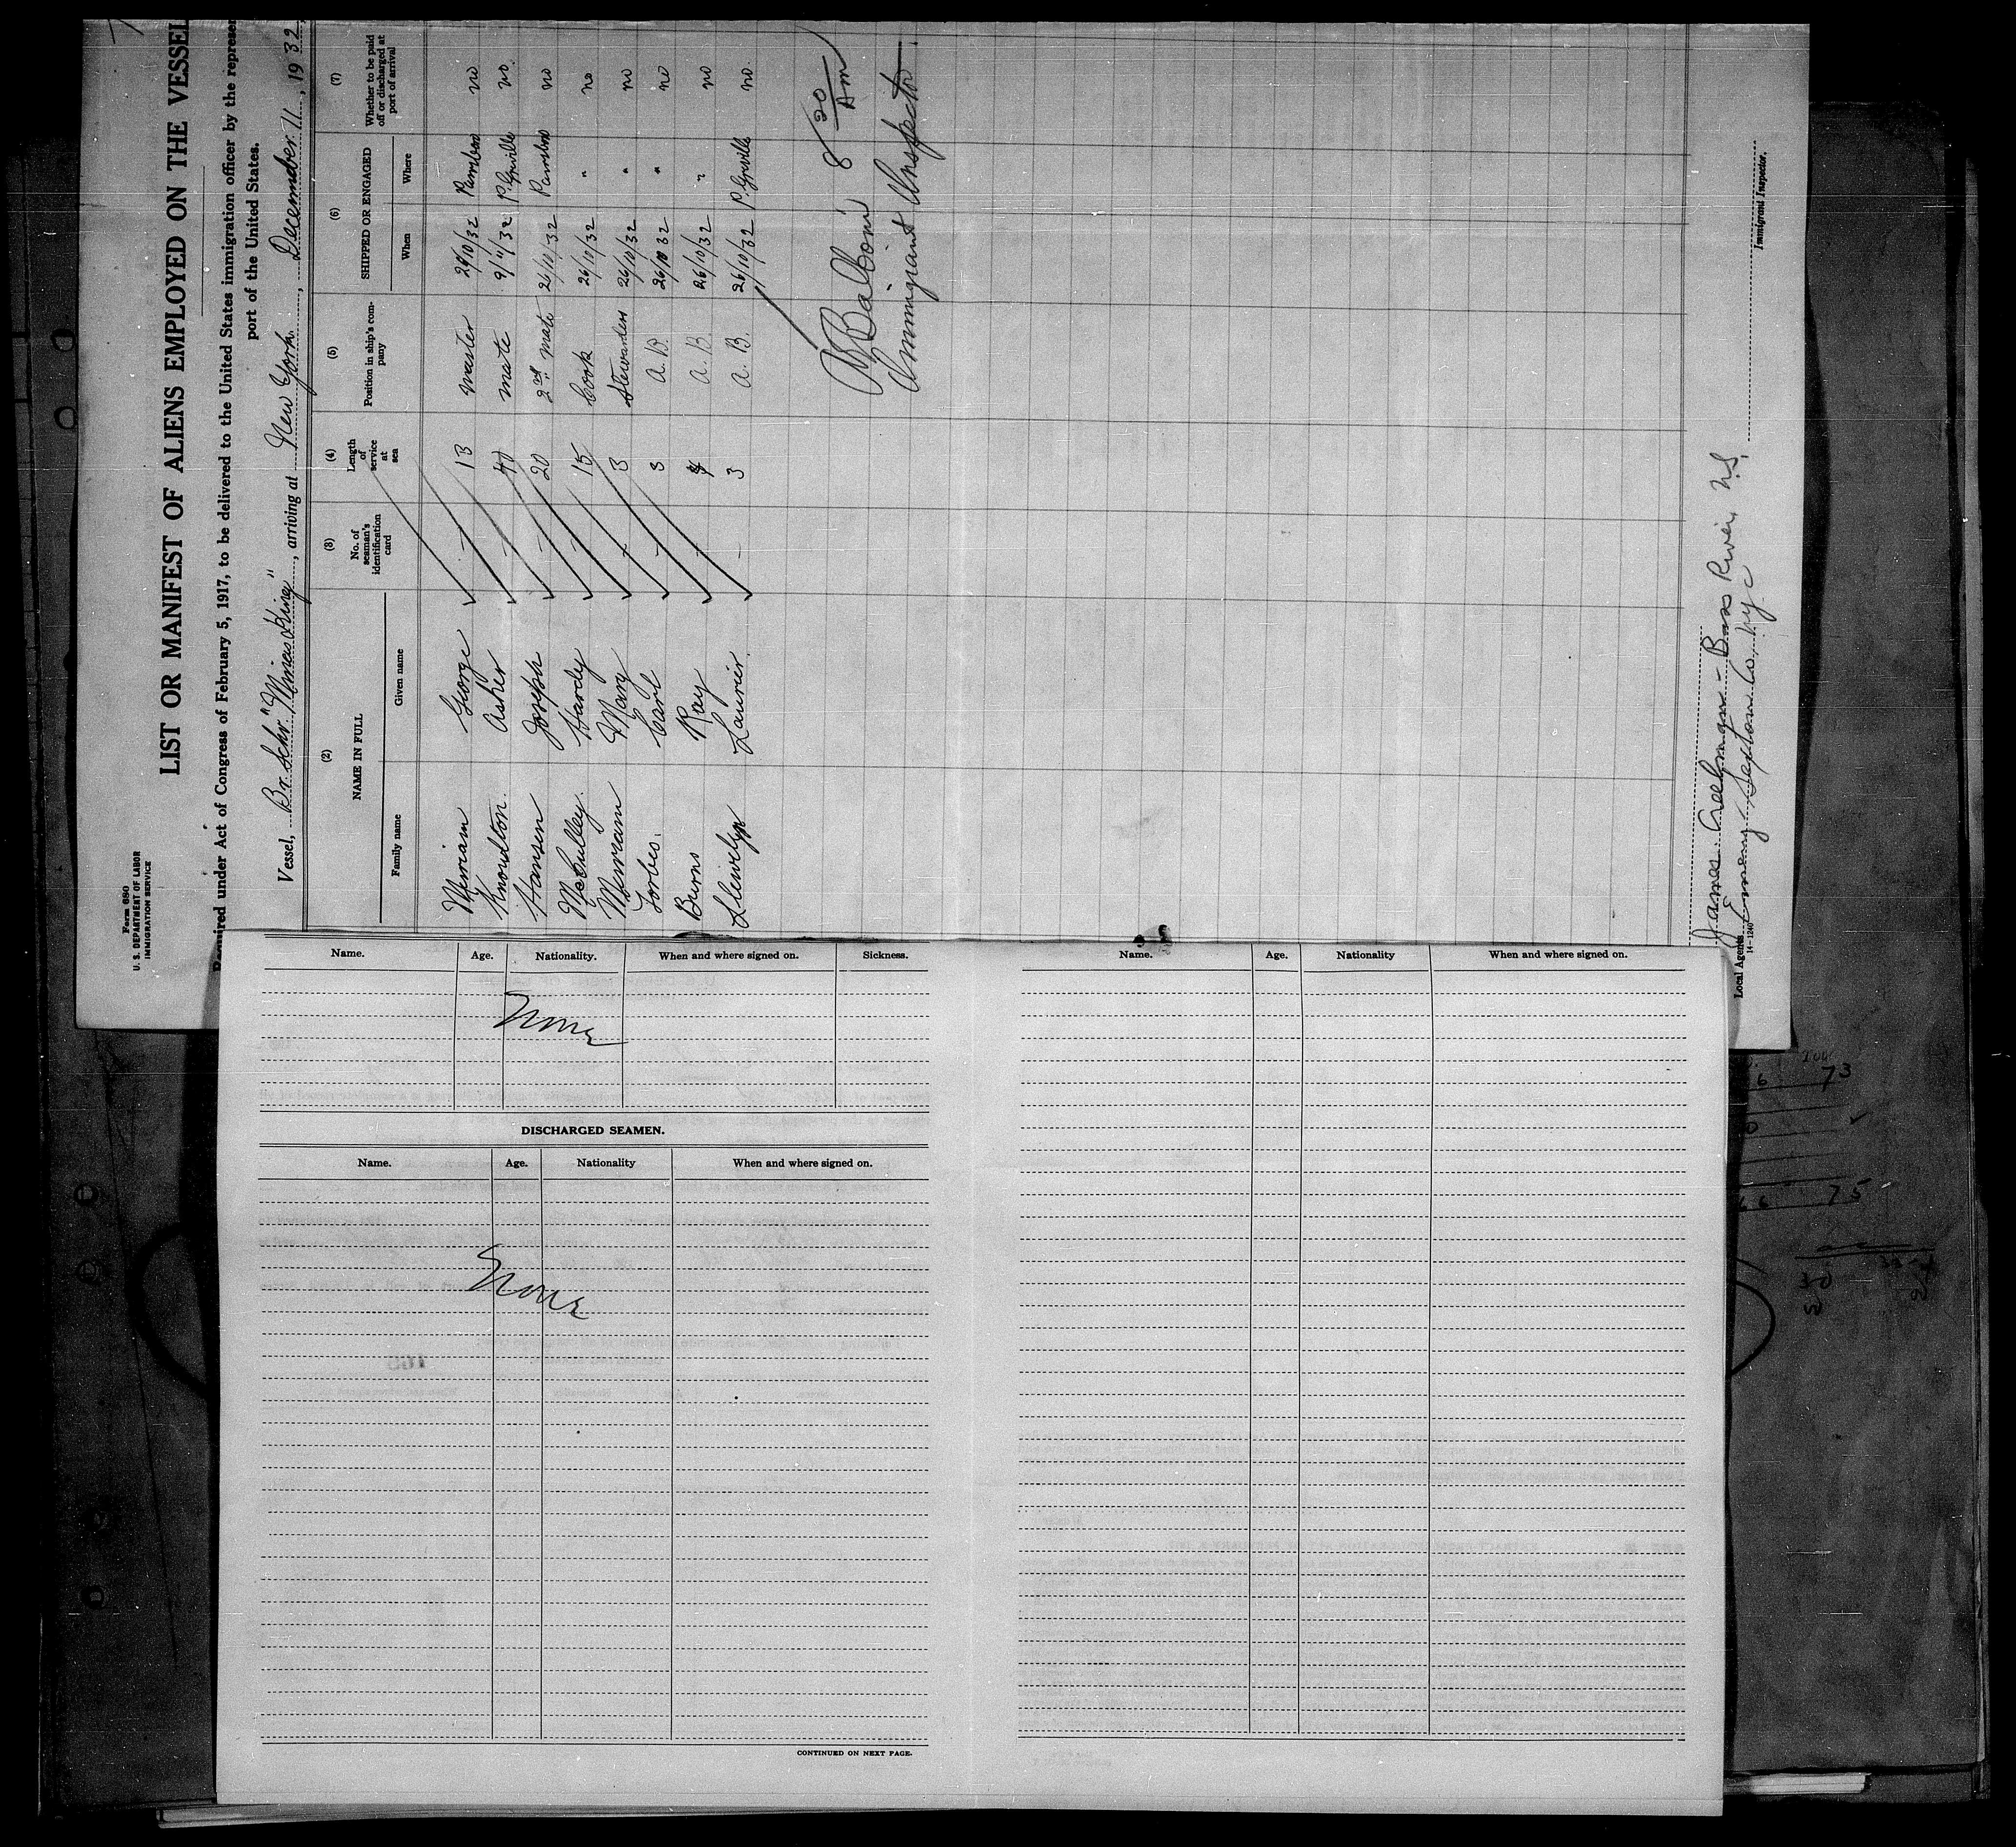 Form 680
U. S. DEPARTMENT OF LABOR
IMMIGRATION SERVICE
LIST OR MANIFEST OF ALIENS EMPLOYED ON THE VESSEL
Required under Act of Congress of February 5, 1917, to be delivered to the United States immigration officer by the represen
port of the United States.
Vessel, Br. Schr. "Minas King", arriving at New York, December 11, 1932,
(2) (3) (4) (5) (6) (7)
NAME IN FULL No. of seaman's identification card Length of service at sea Position in ship's company SHIPPED OR ENGAGED Whether to be paid off or discharged at port of arrival
Family name Given name When Where
Merriam George — 13 Master 26/10/32 Parrsboro no
Knowlton Asher — 40 mate 9/11/32 P. Greville no.
Hansen Joseph — 20 2nd mate 26/10/32 Parrsboro no
McCulley Hardy — 15 Cook 26/10/32 " no
Merriam Mary — 3 Stewardess 26/10/32 " no
Forbes Carl — 3 A. B. 26/10/32 " no
Burns Ray — 4 A. B. 26/10/32 " no
Llewelyn Laurier — 3 A. B. 26/10/32 P. Greville no.
Balboni 8 20/Am
Immigrant Inspector
James Creelman - Bass River, N.S.
Local Agents Sexton Co. NYC
14-1240
Immigrant Inspector.
Name. Age. Nationality. When and where signed on. Sickness.
None
DISCHARGED SEAMEN.
Name. Age. Nationality When and where signed on.
None
CONTINUED ON NEXT PAGE.
Name. Age. Nationality When and where signed on.
73
75